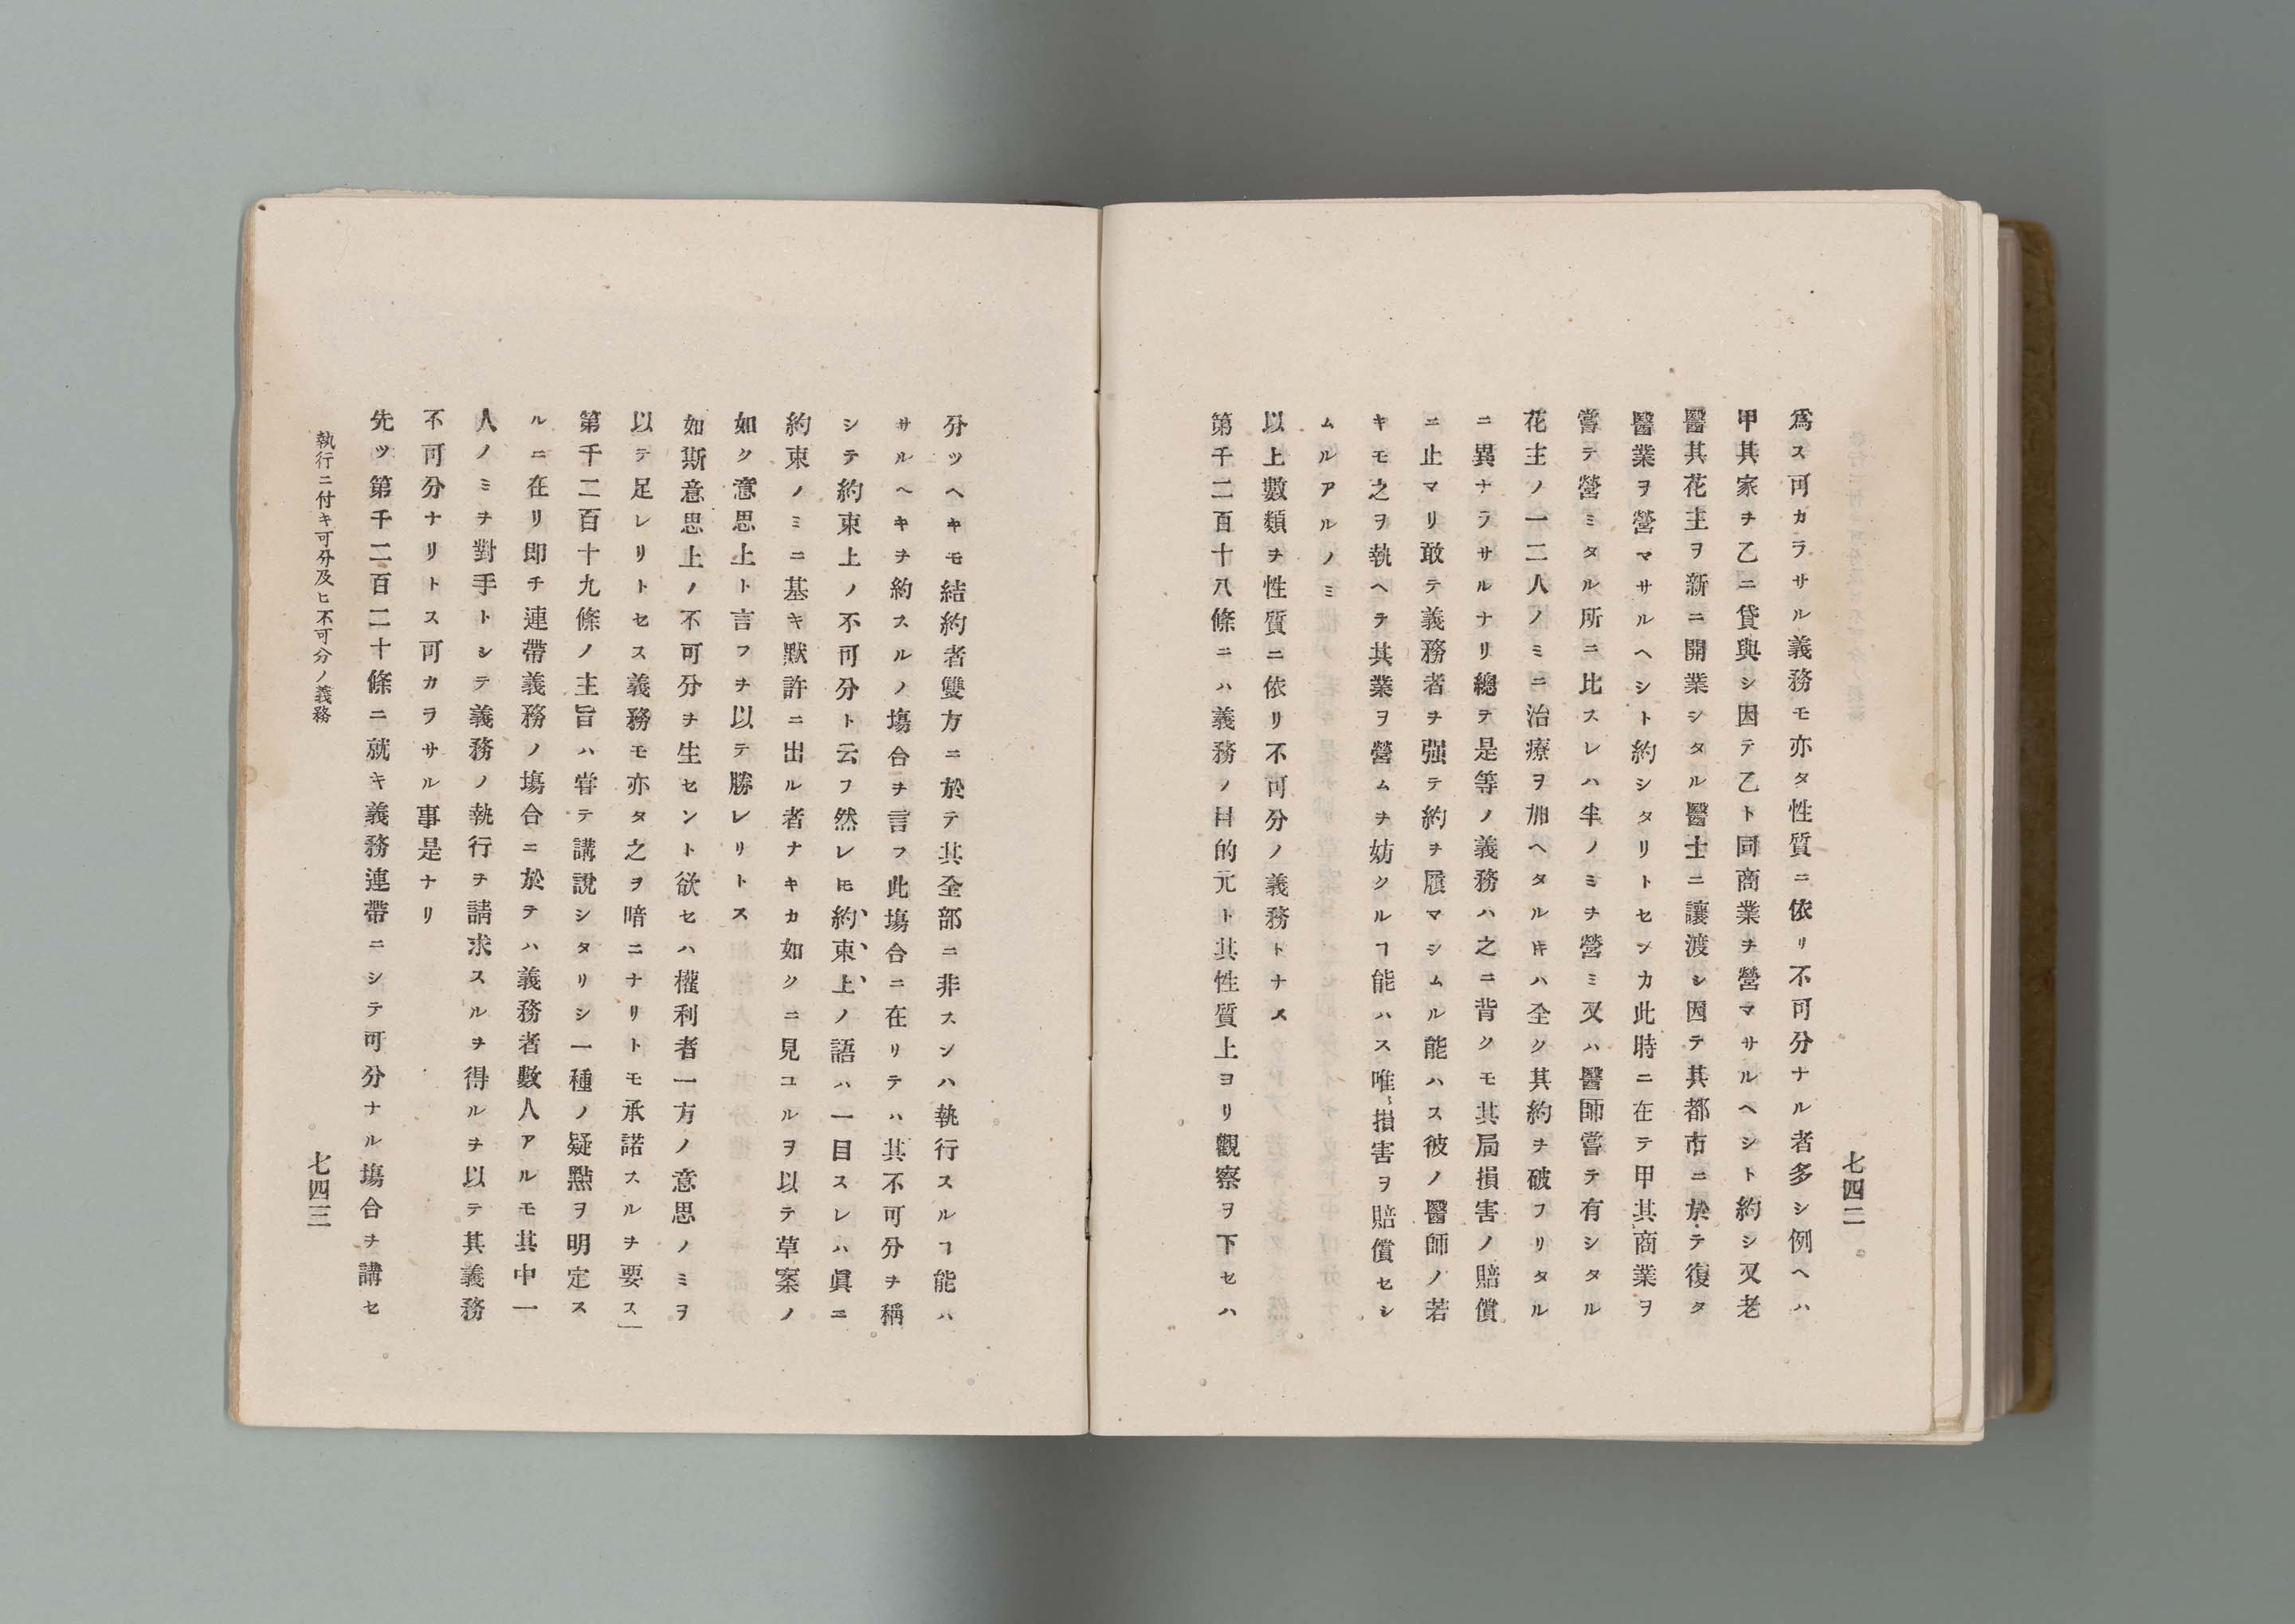 七四二
爲ス可カラサル義務モ亦タ性質ニ依リ不可分ナル者多シ例ヘハ
甲其家チ乙ニ貸與シ因テ乙ト同商業チ營マサルヘシト約シ又老
醫其花主ヲ新ニ開業シタル醫士ニ讓渡シ因テ其都市ニ於テ復タ
醫業ヲ營マサルヘシト約シタリトセンカ此時ニ在テ甲其商業ヲ
嘗テ營ミタル所ニ比スレハ半ノミチ營ミ又ハ醫師嘗テ有シタル
花主ノ一二人ノミニ治療ヲ加ヘタルキハ全ク其約チ破フリタル
ニ異ナラサルナリ總テ是等ノ義務ハ之ニ背クモ其局損害ノ賠償
ニ止マリ敢テ義務者チ强テ約チ履マシムル能ハス彼ノ醫師ノ若
キモ之ヲ執ヘテ其業ヲ營ムチ妨クルヿ能ハス唯損害ヲ賠償セシ
ムルアルノミ
以上數類チ性質ニ依リ不可分ノ義務トナス
第千二百十八條ニハ義務ノ目的元ト其性質上ヨリ觀察ヲ下セハ
分ツヘキモ結約者雙方ニ於テ其全部ニ非スンハ執行スルヿ能ハ
サルヘキチ約スルノ塲合チ言フ此塲合ニ在リテハ其不可分チ稱
シテ約束上ノ不可分ト云フ然レ𪜈約束上ノ語ハ一目スレハ眞ニ
約束ノミニ基キ默許ニ出ル者ナキカ如クニ見ユルヲ以テ草案ノ
如ク意思上ト言フチ以テ勝レリトス
如斯意思上ノ不可分チ生セント欲セハ權利者一方ノ意思ノミヲ
以テ足レリトセス義務モ亦タ之ヲ暗ニナリトモ承諾スルチ要ス」
第千二百十九條ノ主旨ハ甞テ講說シタリシ一種ノ疑點ヲ明定ス
ルニ在リ即チ連帶義務ノ塲合ニ於テハ義務者數人アルモ其中一
人ノミチ對手トシテ義務ノ執行チ請求スルヲ得ルチ以テ其義務
不可分ナリトス可カラサル事是ナリ
先ツ第千二百二十條ニ就キ義務連帶ニシテ可分ナル塲合チ講セ
執行ニ付キ可分及ヒ不可分ノ義務
七四三